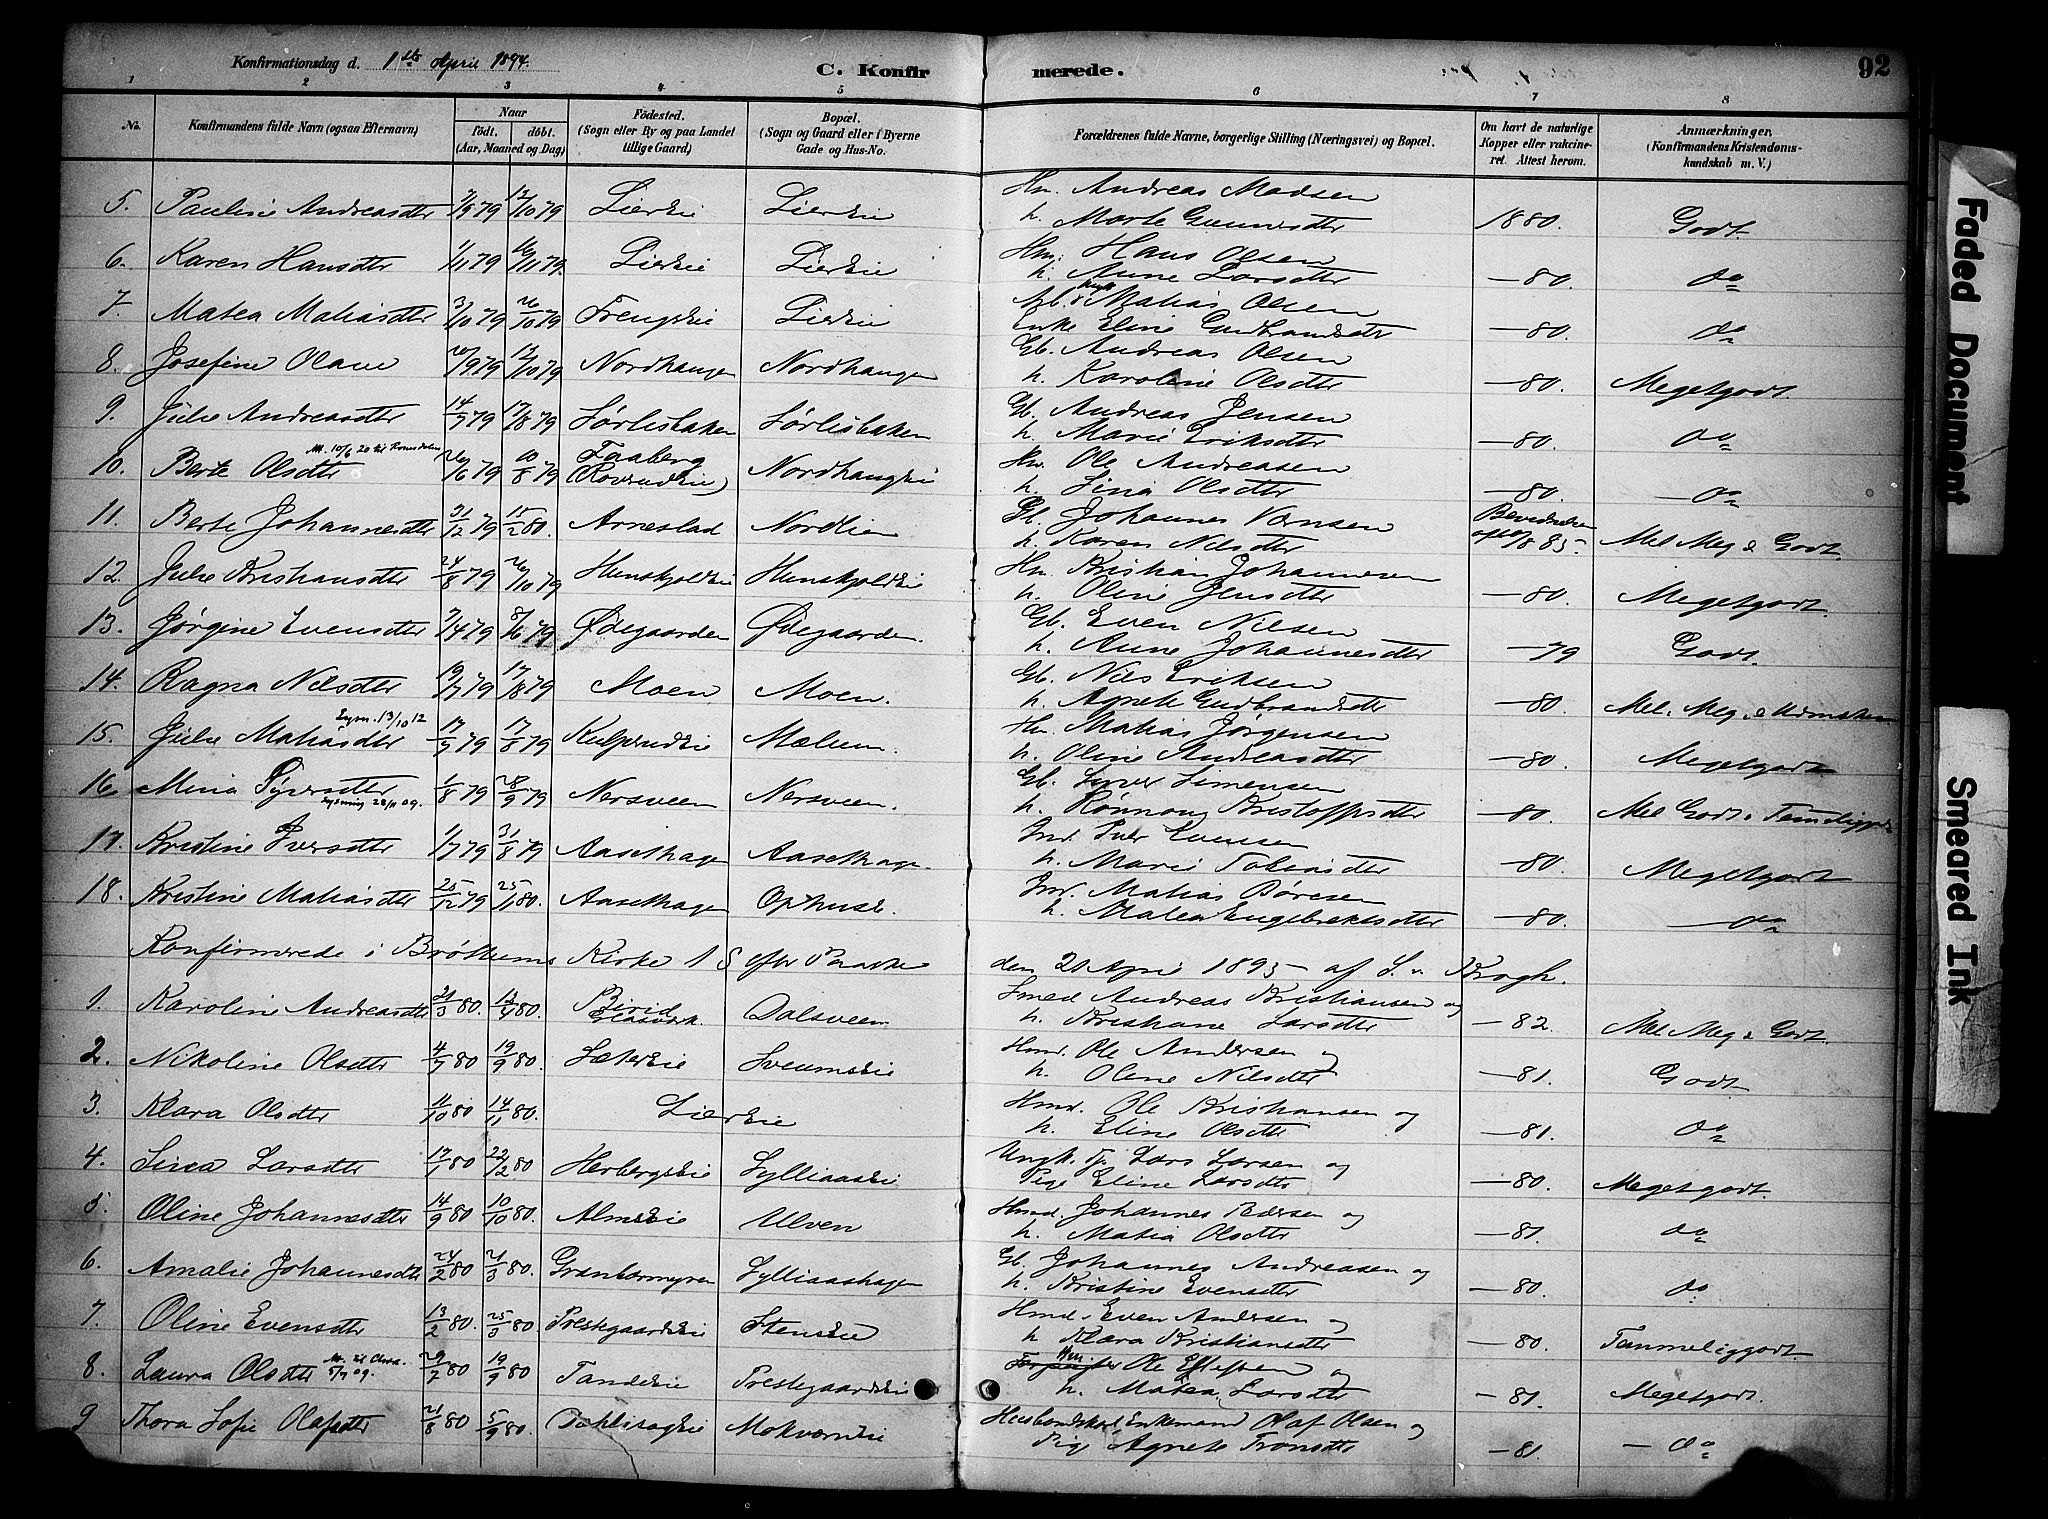 Konfirmationsdag d. 1ste April 1894. C. Konfirmerede. 92
1 2 3 4 5 6 7 8
No. Konfirmandens fulde Navn (ogsaa Efternavn) Naar født. døbt. (Aar, Maaned og Dag) Fødested. (Sogn eller By og paa Landet tillige Gaard) Bopæl. (Sogn og Gaard eller i Byerne Gade og Hus-No. Forældrenes fulde Navne, borgerlige Stilling (Næringsvei) og Bopæl. Om havt de naturlige Kopper eller vakcineret. Attest herom. Anmærkninger. (Konfirmandens Kristendomskundskab m. V.)
5. Pauline Andreasdtr 7/9 79 12/10 79 Liereie Liereie Hm. Andreas Madsen h. Marte Gunnesdtr 1880. Godt.
6. Karen Hansdtr 1/11 79 16/11 79. Liereie Liereie Hm. Hans Olsen h. Anne Larsdtr —80. do
7. Matea Matiasdtr 3/10 79 26/10 79 Liereie Matias Olsen Enke Eline Gudbrandsdtr —80. do
8. Josefine Olave 12/10 79 Nordhaugen Nordhaugen Gb. Andreas Olsen h. Karoline Olsdtr —80. Megetgodt.
9. Julie Andreasdtr 14/7 79 17/8 79 Sørlisbaken Sørlisbaken Gb. Andreas Jensen h. Marie Eriksdtr —80. do
10. Berte Olsdtr 10/8 79 Faaberg Nordhaugeie Hm. Ole Andreasen h. Lina Olsdtr —80. —do
11. Berte Johannesdtr 31/12 79 15/2 80. Arnestad Nordlien Gb. Johannes h. Karen Nilsdtr Mel Meg & Godt.
12. Julie Kristiansdtr 24/8 79 26/10 79 Hunskjoldeie Hunskjoldeie Hm. Kristian Johannesen h. Oline Jensdtr —80. Megetgodt.
13. Jørgine Evensdtr 8/6 79 Ødegaarden Ødegaarden. Gb. Even Nilsen h. Anne Johannesdtr —79 Godt.
14. Ragna Nilsdtr 17/8 79 Moen Moen. Gb. Nils Eriksen h. Agnete Gudbrandsdtr —80. Mel. Meg. &
15. Julie Matiasdtr 13/10 12 17/7 79 17/8 79 Mælum. Hm. Matias Jørgensen h. Oline Andreasdtr —80. Megetgodt
16. Mina Syversdtr Lysning 1/8 79 28/9 79 Nersveen Nersveen. Gb. Syver Simensen h. Rønnaug Kristoffersdtr —80. Mel Godt &
17. Kristine Iversdtr 1/7 79 31/8 79 Aaselhagen Aaselhagen Ind. Iver Evensen h. Marie Tobiasdtr —80. Megetgodt
18. Kristine Matiasdtr 25/12 79 25/1 80. Aaselhagen Ophuse. Ind. Matias Børesen h. Matea Engebrektsdtr —80. —do
Konfirmerede i Brøttums Kirke 1 S. efter Paaske den 21 April 1895 af S. v. Krogh.
1. Karoline Andreasdtr 21/3 80. Birid Glasværk. Dalsveen Smed Andreas Kristiansen og h. Kristiane Larsdtr —82. Mel Meg & Godt.
2. Nikoline Olsdtr 4/7 80 19/9 80. Sætereie Sveumseie Hmd. Ole Andersen og h. Oline Nilsdtr —81. Godt
3. Klara Olsdtr 11/10 80 14/11 80. Liereie Hmd. Ole Kristiansen og h. Eline Olsdtr —81. do
4. Larsdtr 22/12 80 Herbergseie Lylliaaseie Ungk. Tj. Lars Larsen og Pige Eline Larsdtr —80. Megetgodt.
5. Oline Johannesdtr 14/9 80 10/10 80. Almseie Ulven Hmd. Johannes Pedersen og h. Matia Olsdtr —81. do
6. Amalie Johannesdtr 24/2 80 21/3 80. Granbermyren Lylliaashagen Gb. Johannes Andreasen og h. Kristine Evensdtr —80. do
7. Oline Evensdtr 13/2 80. 25/3 80 Prestegaardseie Stenseie Hmd. Even Andersen og h Klara Kristiansdtr —80. Temmeliggodt.
8. Laura Olsdtr 80 19/9 80. Tandeeie Prestegaardseie Hm Ole og h. Matea Larsdtr —81. Megetgodt.
9 Thora Sofie Olafsdtr 21/8 80 5/9 80. Dahlisageie Mokværneie Husbondskarl Enkemand Olaf Olsen og Pige Agnete Tronsdtr —81. —do
Faded Document
Smeared Ink